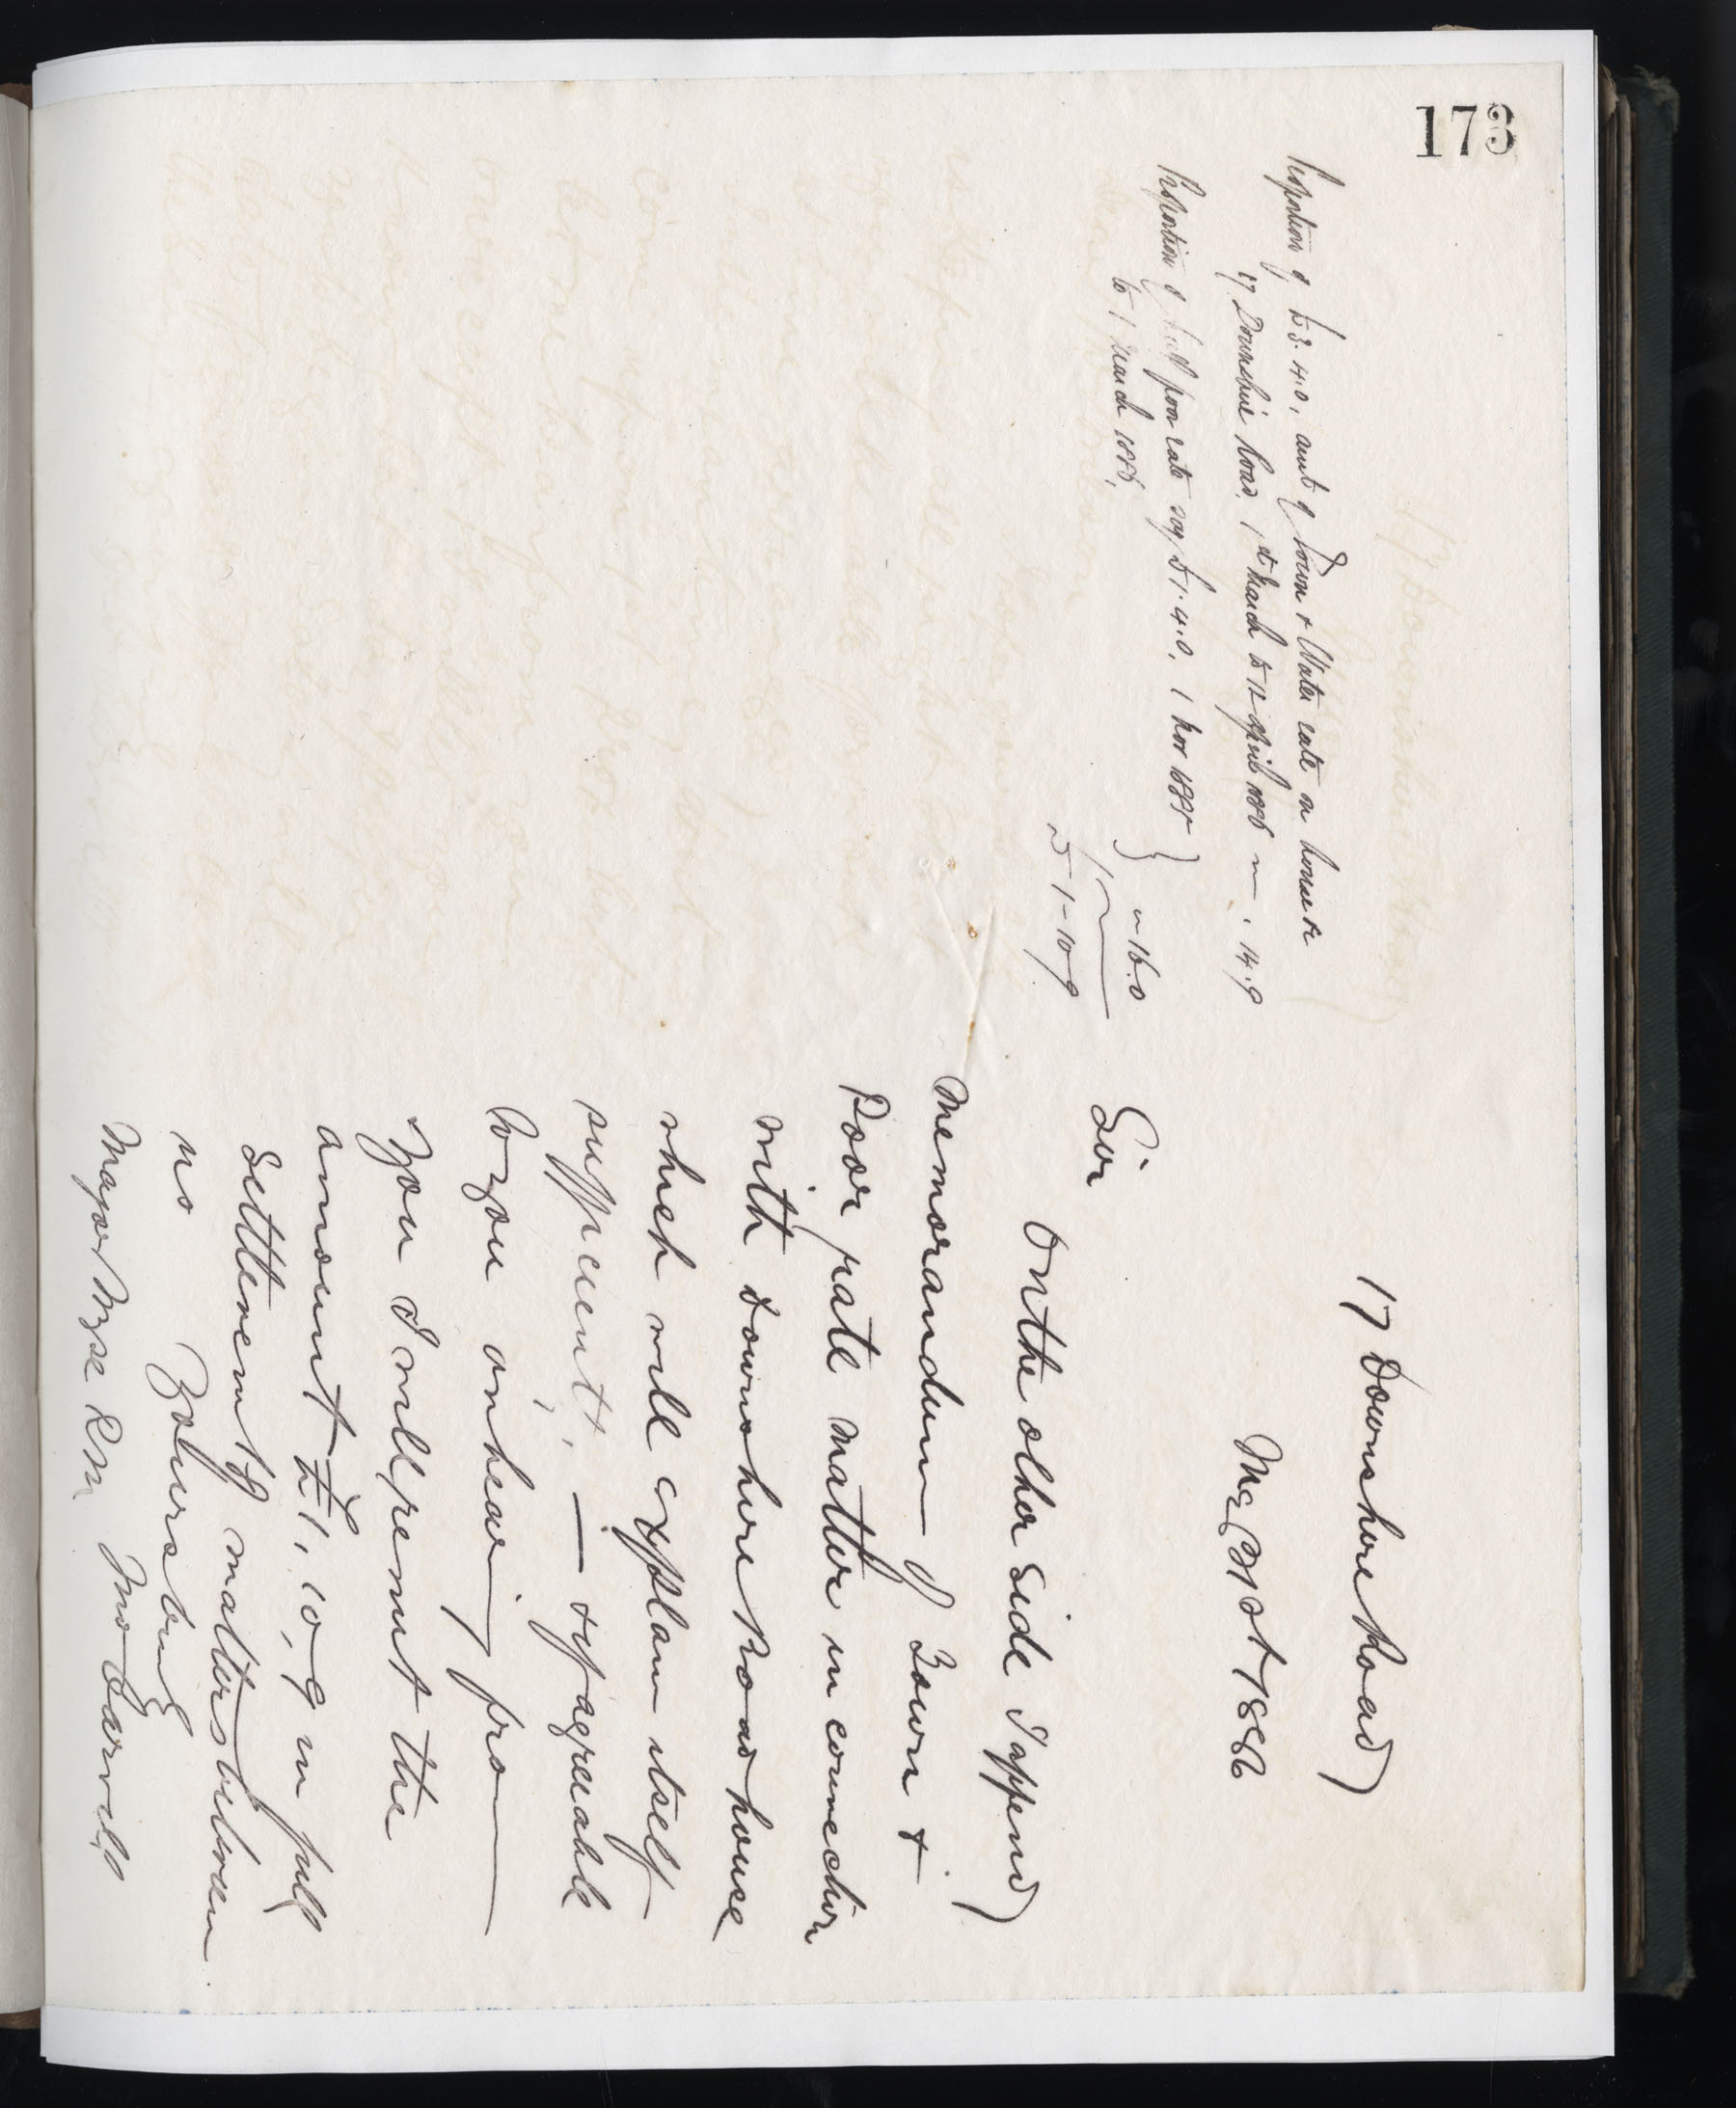 173
Proportion of £3.4.0, amt of Town & Water rate on house
17 Downshire Road, 1st March to 12 April 1886 .14.9
Proportion of half poor rate say £1.4.0, 1 Nov 1885
to 1 March 1886, 16.0
£1-10-9
17 Downshire Road
May 31st 1886
Sir
On the other side I append
Memorandum of Town &
Poor rate matter in connection
with Downshire Road house
which will explain itself
sufficient, — & if agreeable
to you on hearing from
you I will remit the
amount £1, 10, 9 in full
Settlement of matters between
us Yours truly
Major Wyse RM